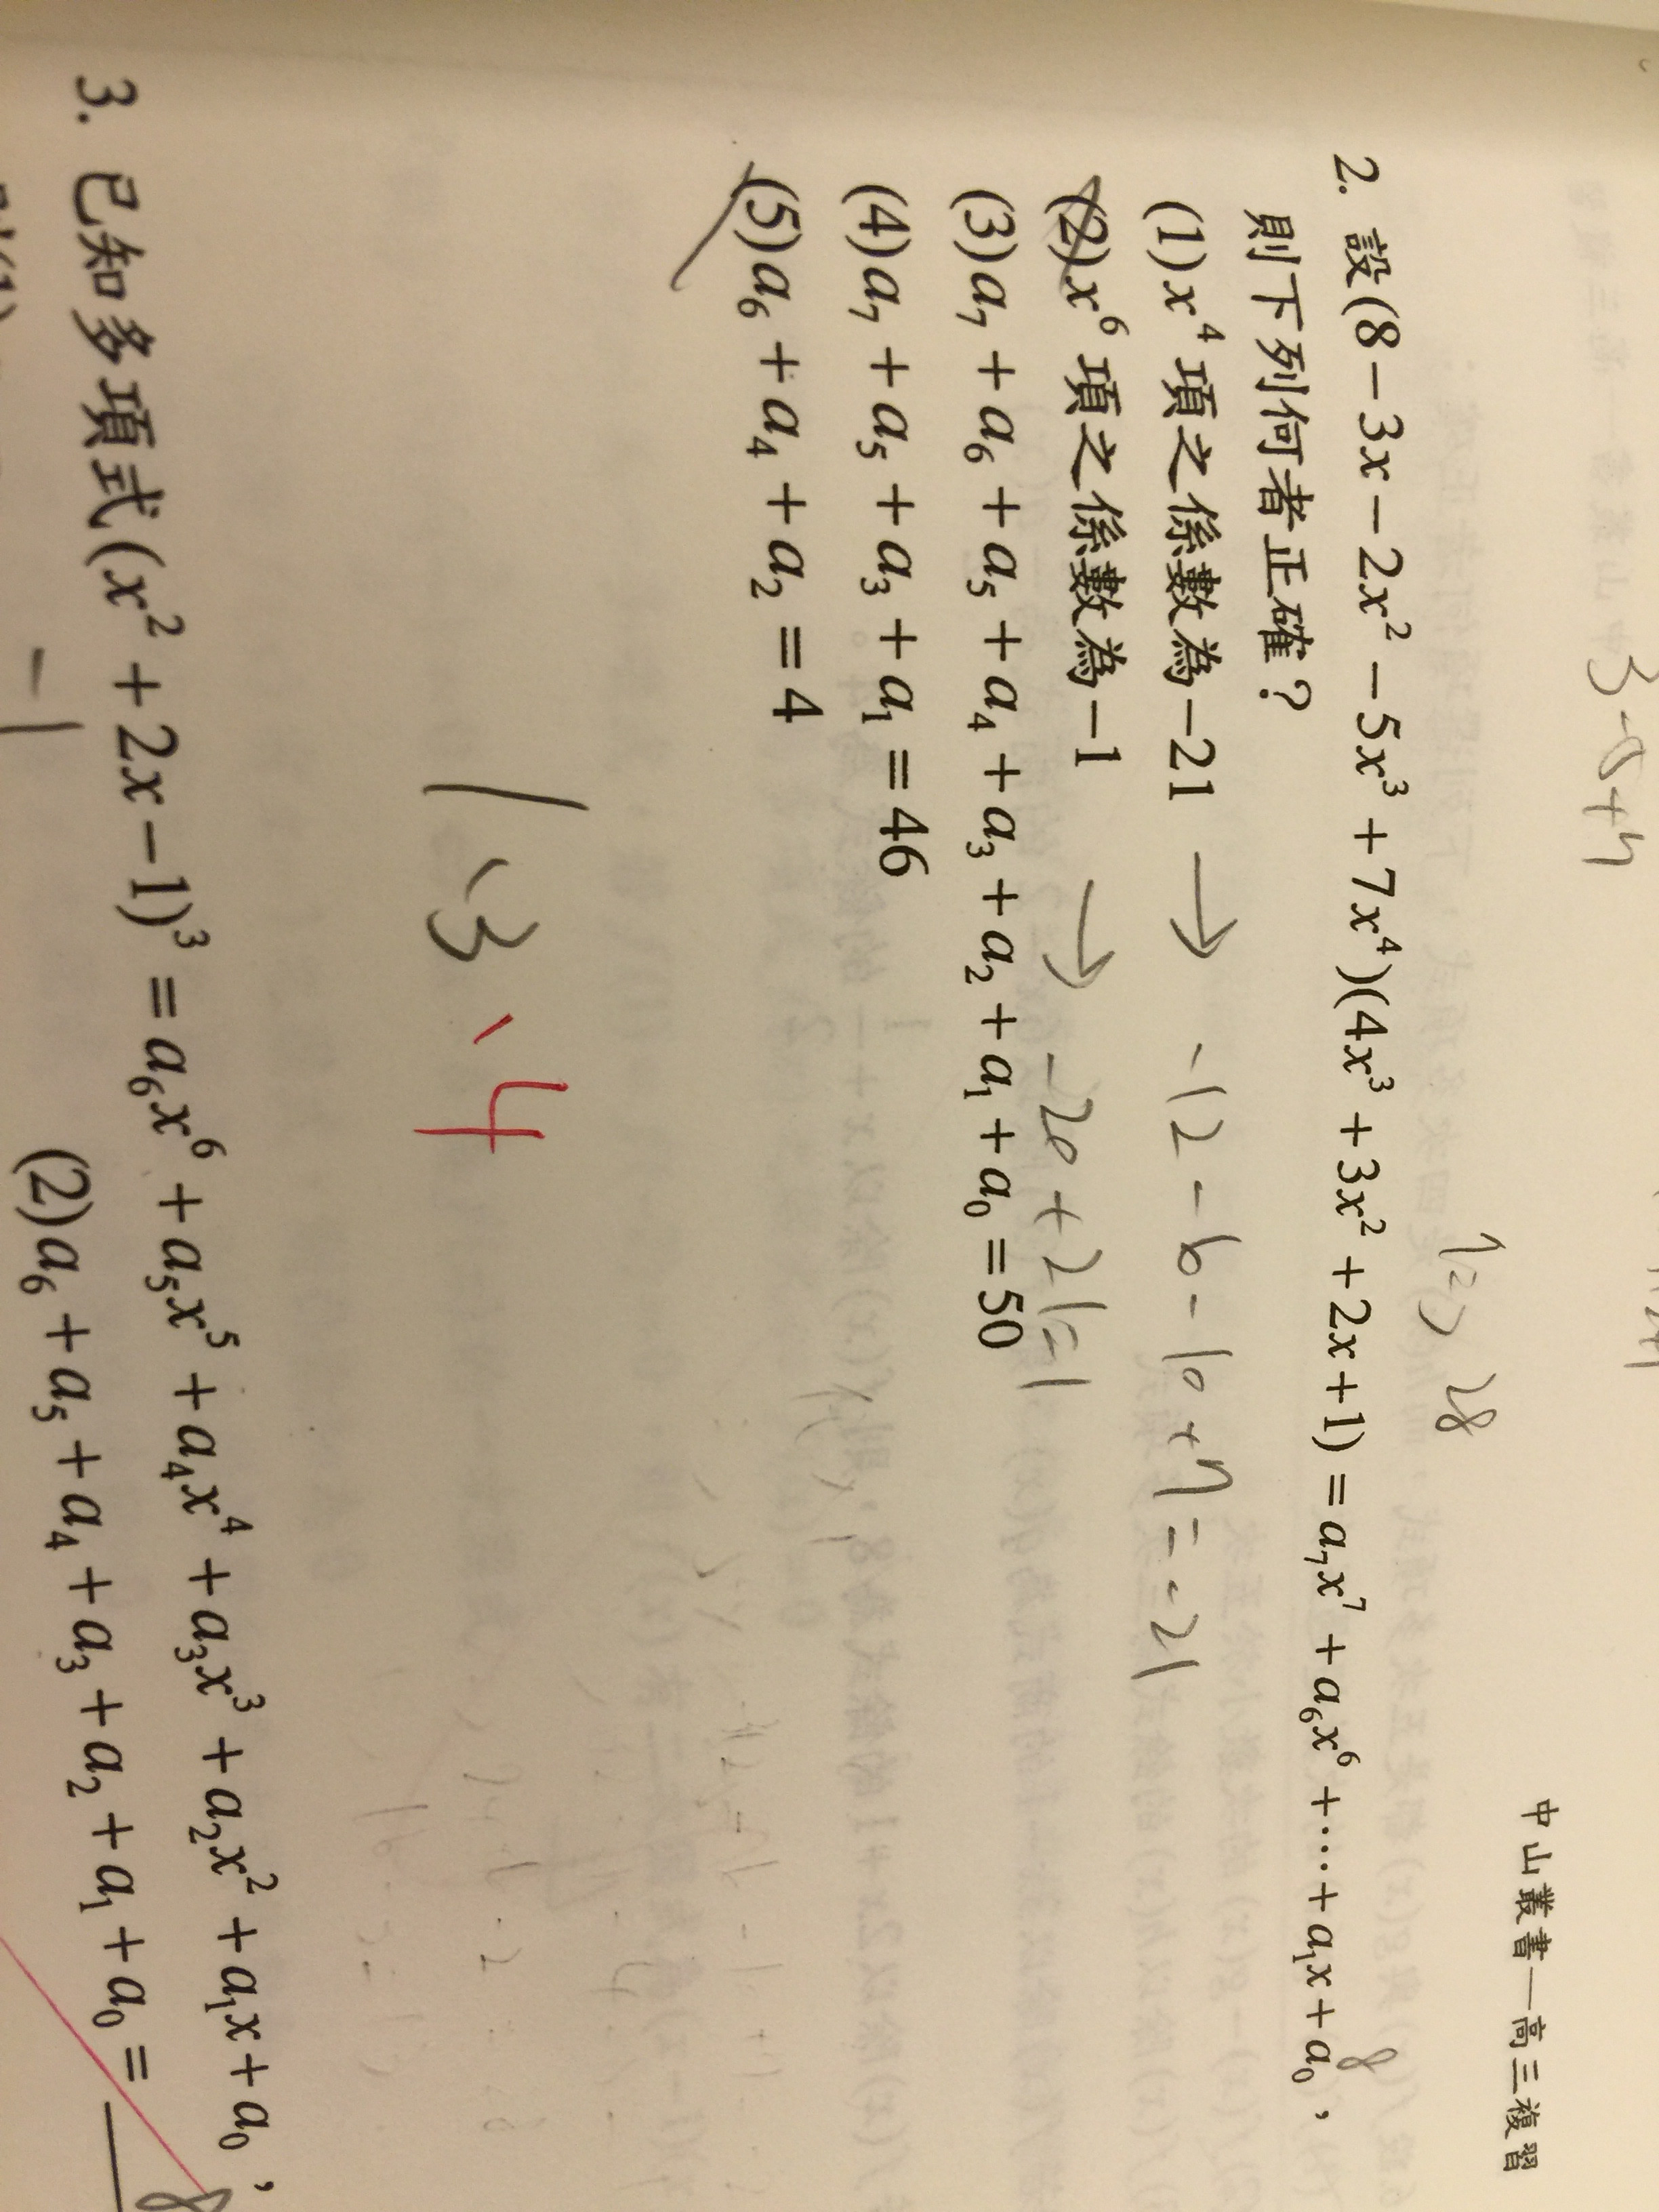 3-5+4
7=) 28
中山叢書—高三複習
2. 設(8－3x－2x²－5x³＋7x⁴)(4x³＋3x²＋2x＋1)＝a₇x⁷＋a₆x⁶＋⋯＋a₁x＋a₀，
8
則下列何者正確？
(1)x⁴項之係數為－21 → -12-6-10+7=-21
(2)x⁶項之係數為－1 → -20+21=1
(3)a₇＋a₆＋a₅＋a₄＋a₃＋a₂＋a₁＋a₀＝50
(4)a₇＋a₅＋a₃＋a₁＝46
(5)a₆＋a₄＋a₂＝4
1、3、4
3. 已知多項式(x²＋2x－1)³＝a₆x⁶＋a₅x⁵＋a₄x⁴＋a₃x³＋a₂x²＋a₁x＋a₀，
-1
(2)a₆＋a₅＋a₄＋a₃＋a₂＋a₁＋a₀＝ 8